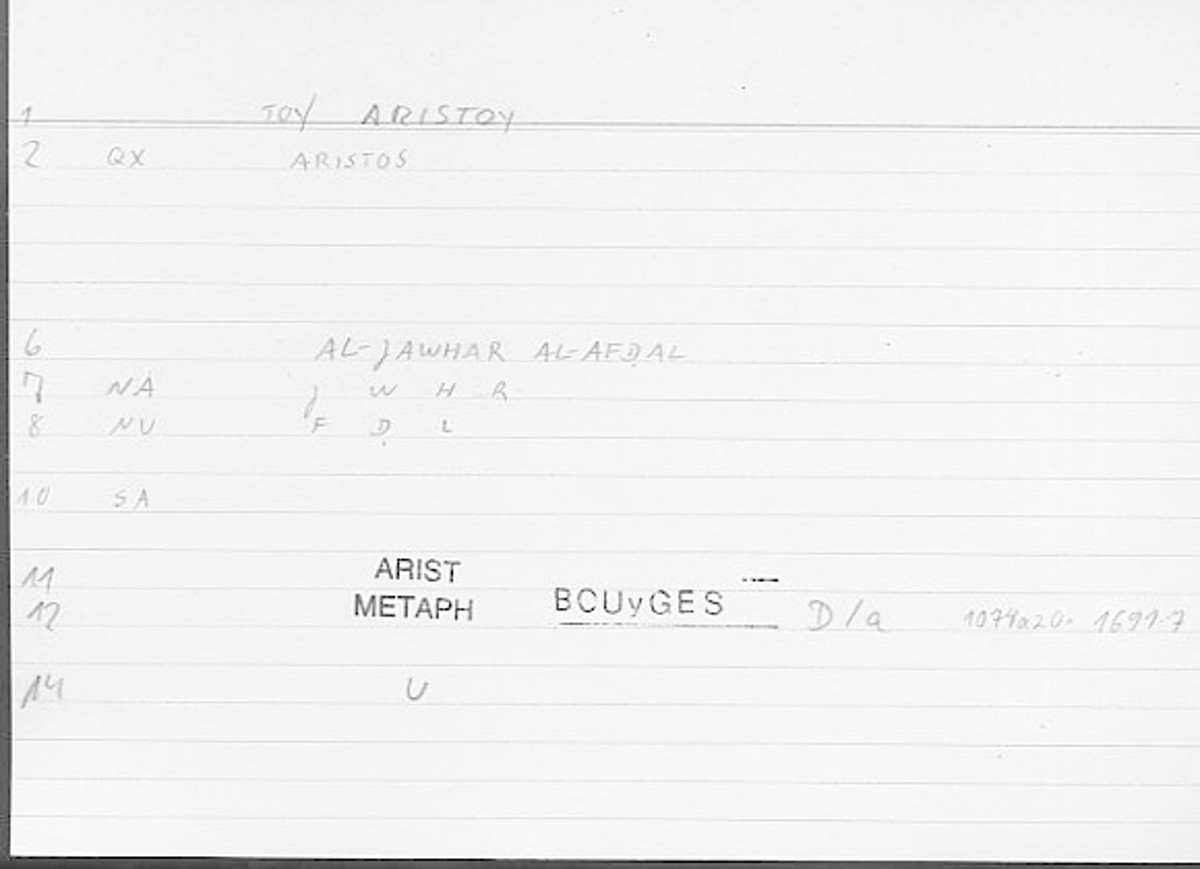 1 TOY ARISTOY
2 QX ARISTOS
6 AL-JAWHAR AL-AFḌAL
7 NA J W H R
8 NU F Ḍ L
10 SA
11 ARIST
12 METAPH BCUyGES D/a 1074a20. 1691.7
14 U